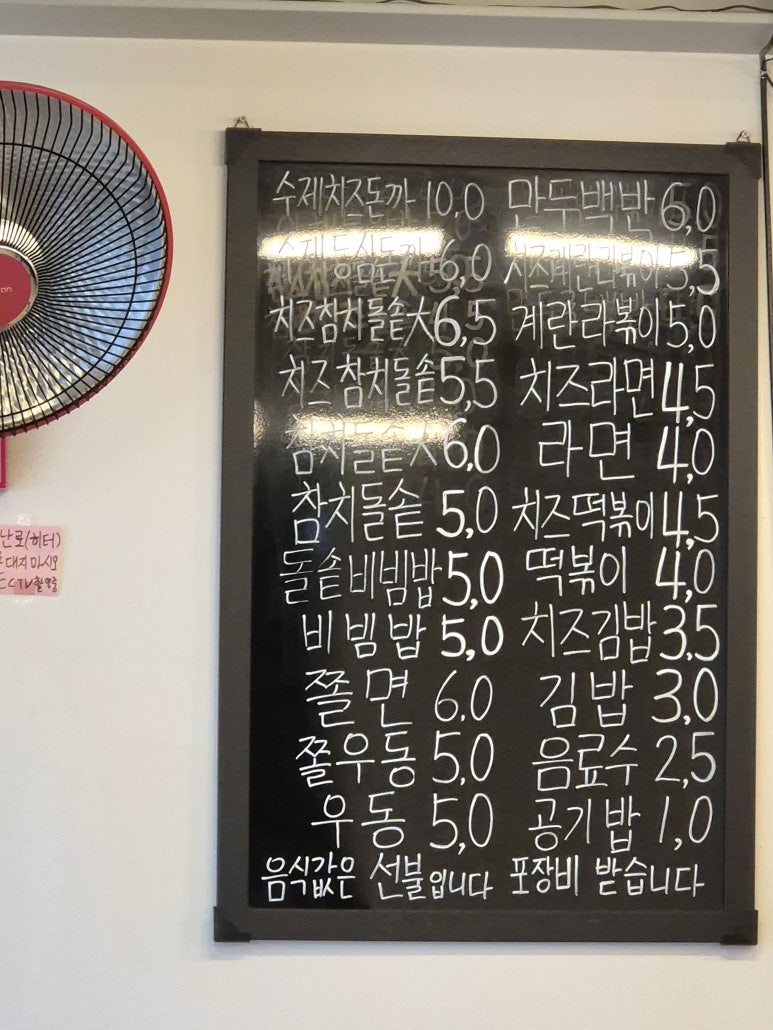 수제치즈돈까 10,0
수제등심돈까 6,0
치즈참치돌솥大 6,5
치즈참치돌솥 5,5
참치돌솥大 6,0
참치돌솥 5,0
돌솥비빔밥 5,0
비빔밥 5,0
쫄면 6,0
쫄우동 5,0
우동 5,0
음식값은 선불입니다
만두백반 6,0
치즈계란라볶이 5,5
계란라볶이 5,0
치즈라면 4,5
라면 4,0
치즈떡볶이 4,5
떡볶이 4,0
치즈김밥 3,5
김밥 3,0
음료수 2,5
공기밥 1,0
포장비 받습니다
난로(히터)
대지 마시오
CCTV촬영중